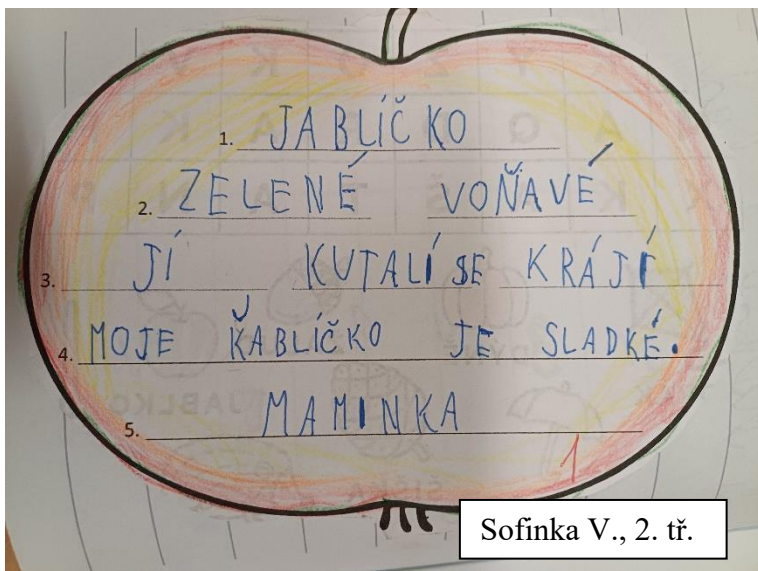 1. JABLÍČKO
2. ZELENÉ VOŇAVÉ
3. JÍ KUTALÍ SE KRÁJÍ
4. MOJE ŘABLÍČKO JE SLADKÉ.
5. MAMINKA
1
Sofinka V., 2. tř.